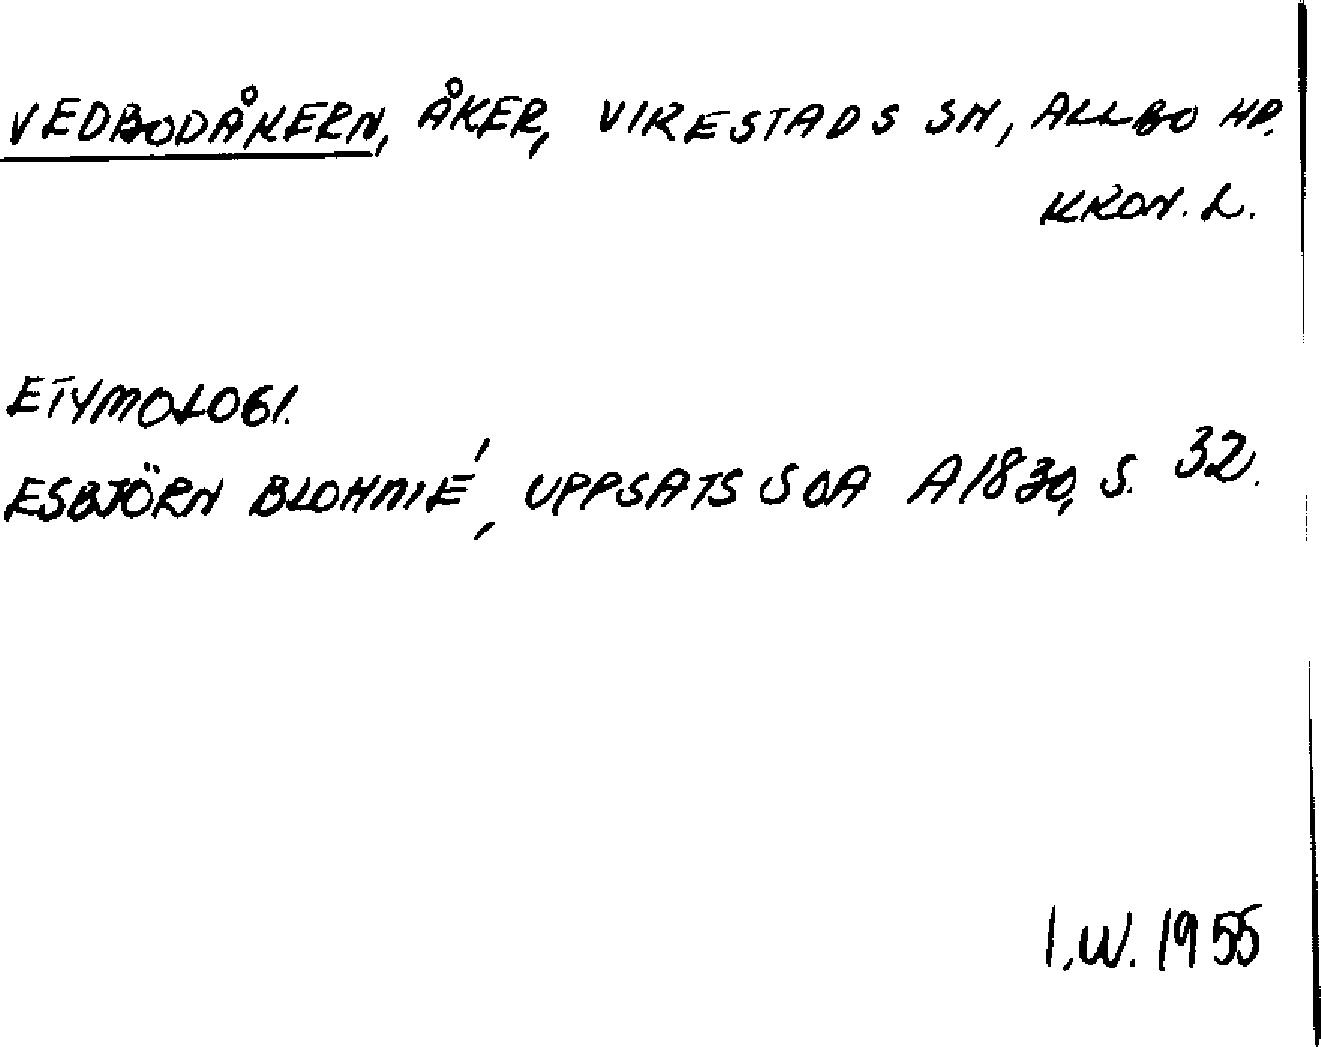 VEDBODÅKERN, ÅKER, VIRESTADS SN, ALLBO HD.
KRON. L.
ETYMOLOGI.
ESBJÖRN BLOHMÉ, UPPSATS SOA A1830, S. 32.
I.W. 1955